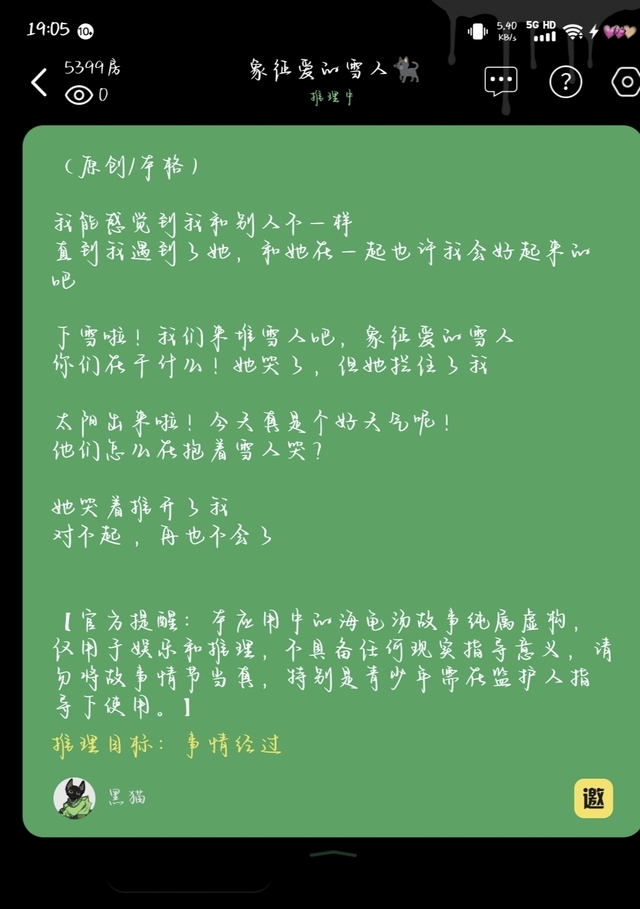 19:05 10+ 5.40 KB/s 5G HD
5399房
0
象征爱的雪人
推理中
（原创/本格）
我能感觉到我和别人不一样
直到我遇到了她，和她在一起也许我会好起来的
吧
下雪啦！我们来堆雪人吧，象征爱的雪人
你们在干什么！她哭了，但她拦住了我
太阳出来啦！今天真是个好天气呢！
他们怎么在抱着雪人哭？
她哭着推开了我
对不起，再也不会了
【官方提醒：本应用中的海龟汤故事纯属虚构，
仅用于娱乐和推理，不具备任何现实指导意义，请
勿将故事情节当真，特别是青少年需在监护人指
导下使用。】
推理目标：事情经过
黑猫
邀